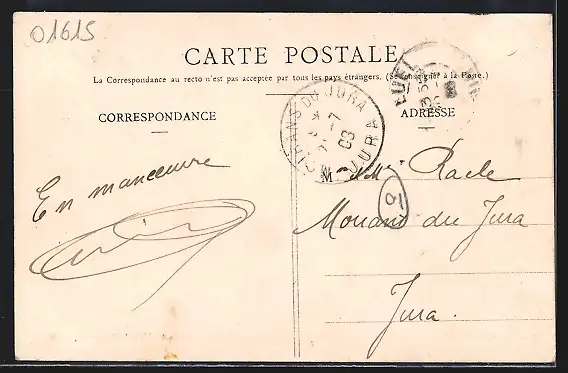 01615
CARTE POSTALE
La Correspondance au recto n'est pas acceptée par tous les pays étrangers. (Se renseigner à la Poste.)
CORRESPONDANCE
ADRESSE
MOIRANS DU JURA
JURA
-7
09
En manoeuvre
M Racle
Moirans du Jura
Jura.